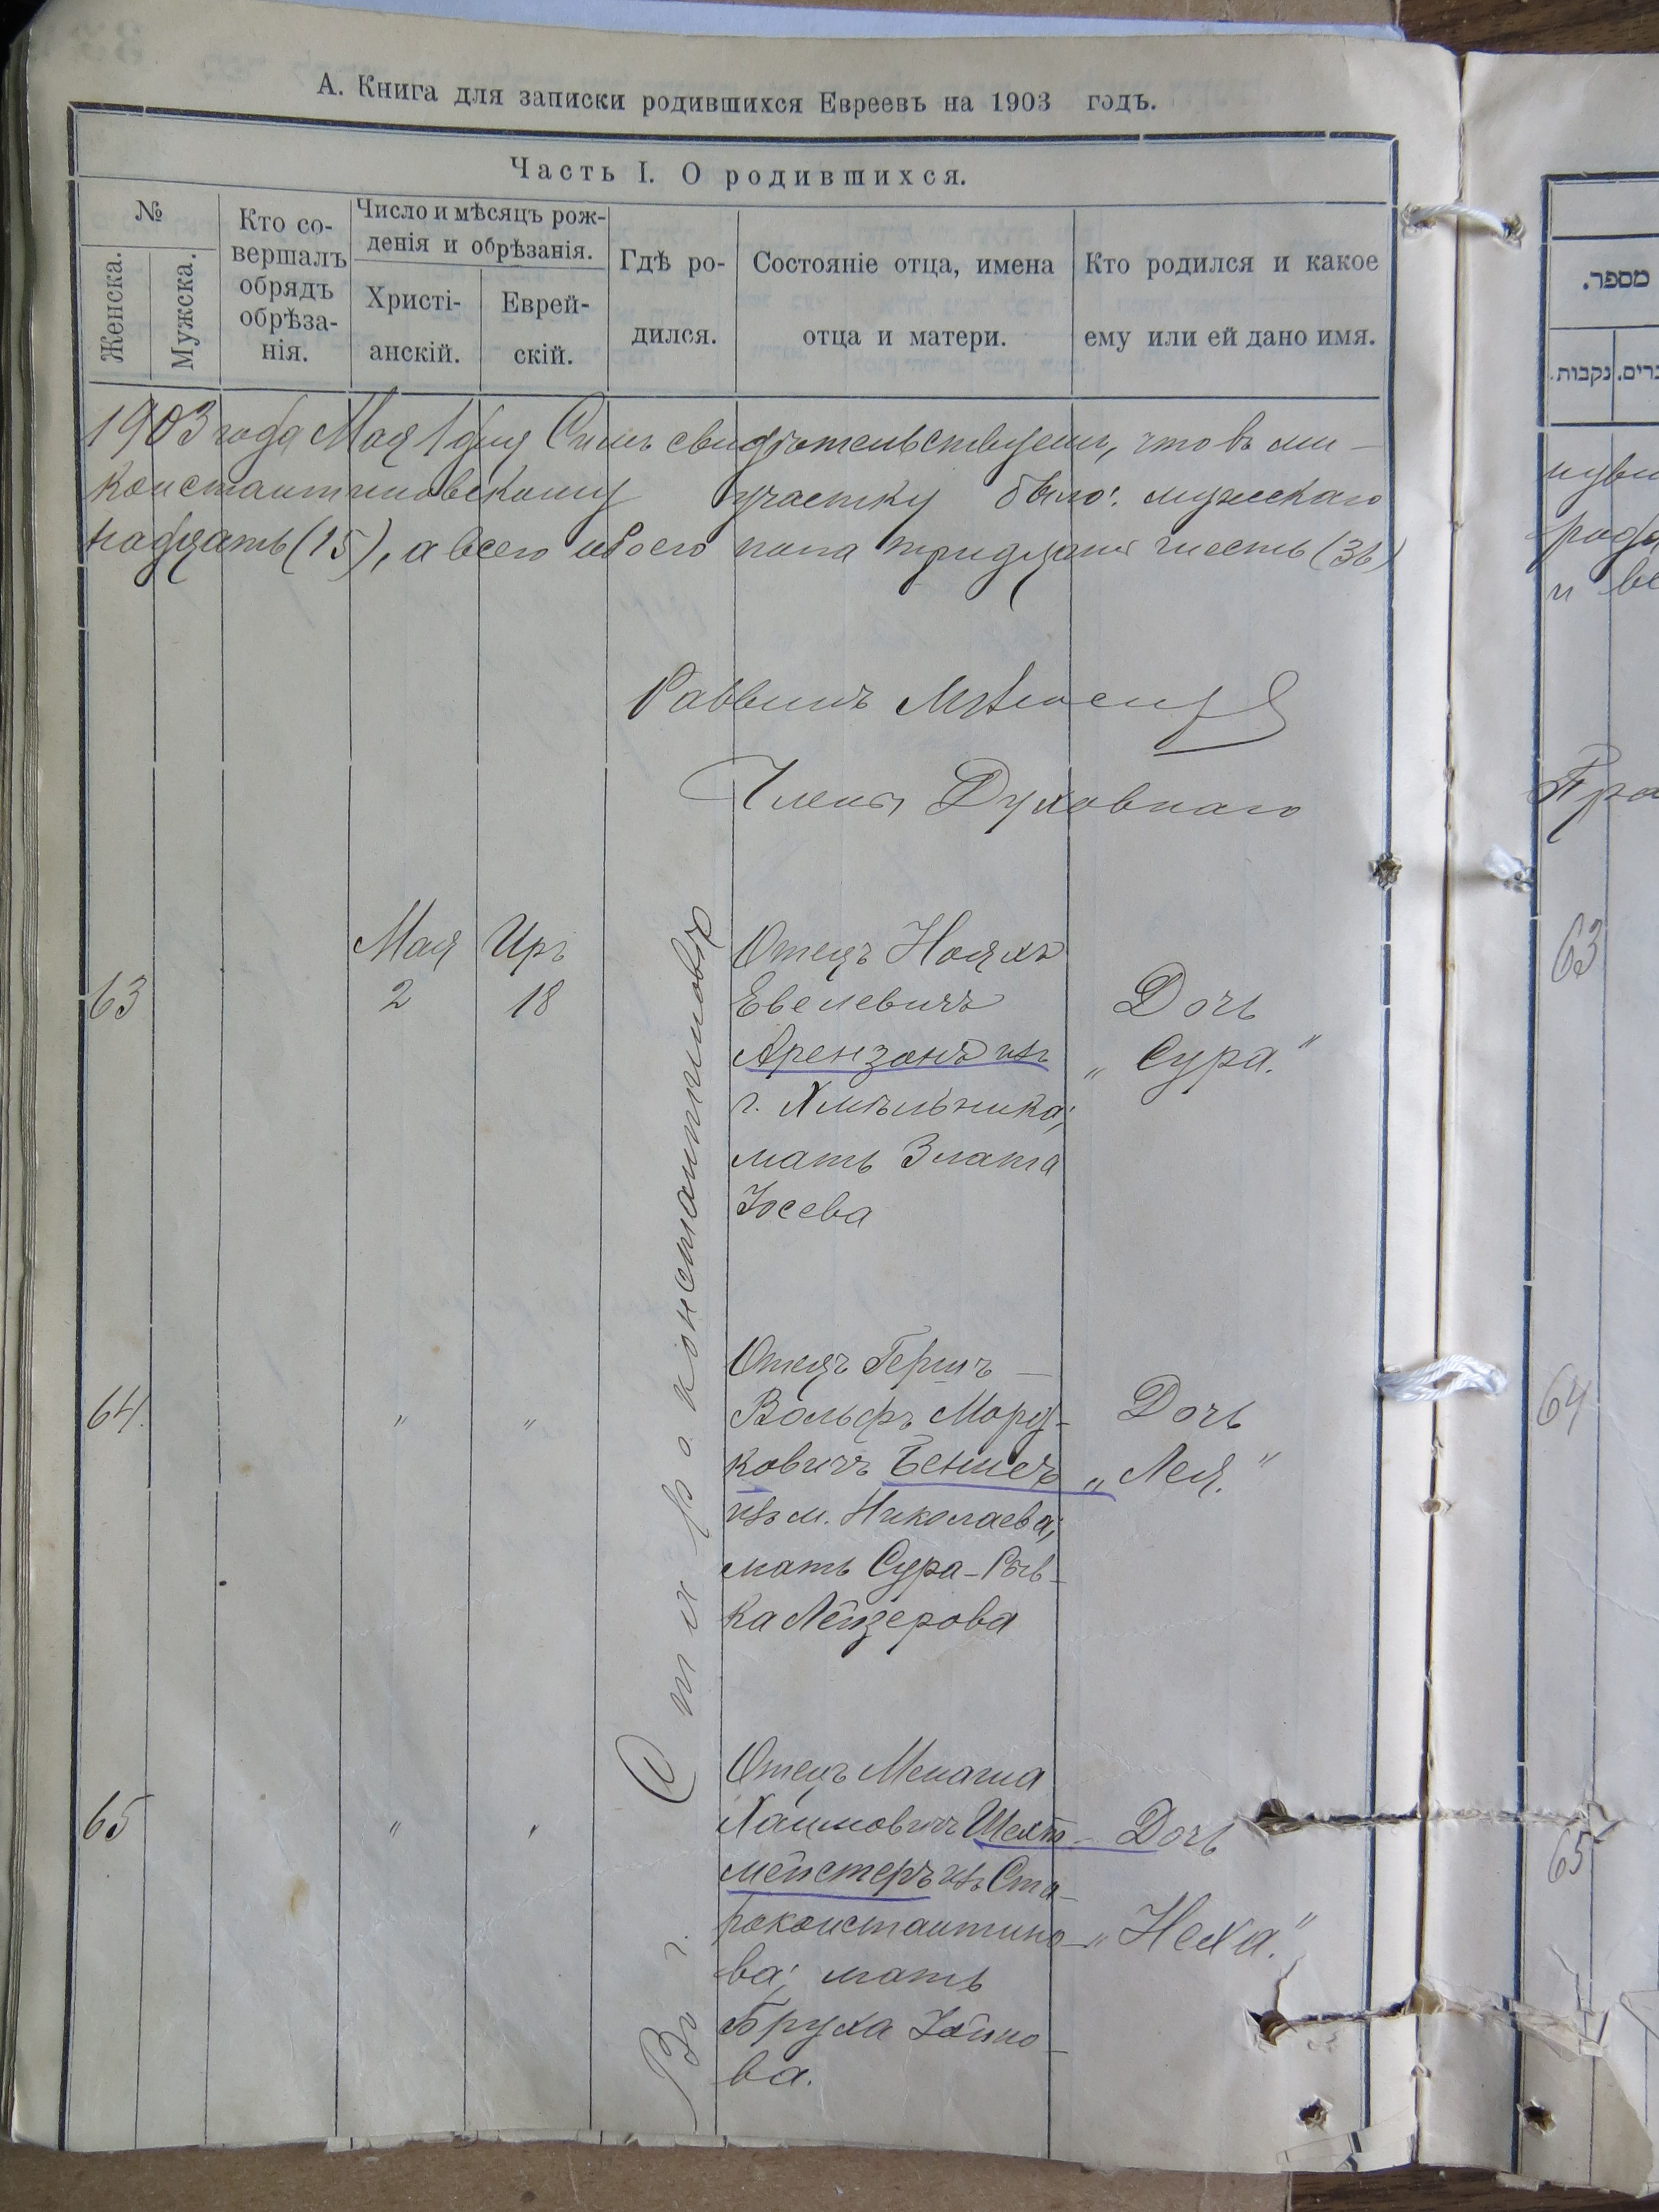 А. Книга для записки родившихся Евреевъ на 1903 годъ.
Часть I. О родившихся.
№
Женска.
Мужска.
Кто со-
вершалъ
обрядъ
обрѣза-
нія.
Число и мѣсяцъ рож-
денія и обрѣзанія.
Христі-
анскій.
Еврей-
скій.
Гдѣ ро-
дился.
Состояніе отца, имена
отца и матери.
Кто родился и какое
ему или ей дано имя.
1903 года Мая 1 дня Симъ свидѣтельствуемъ, что въ ми-
константиновскому участку было: мужскаго
надцать (15), а всего обоего пола тридцать шесть (36)
Раввинъ
Члены Духовнаго
Въ г. Старо константиновѣ
63
Мая
2
Иръ
18
Отецъ Нояхъ
Евелевичъ
Арензонъ изъ
г. Хмѣльника;
мать Злата
Іосева
Дочь
„Сура.“
64.
„
„
Отецъ Гершъ-
Вольфъ Морд-
ковичъ
изъ м. Николаева;
мать Сура-Рыв-
ка Лейзерова
Дочь
„Лея.“
65
„
„
Отецъ Менаша
Хаимовичъ Шехт-
мейстеръ изъ Ста-
роконстантино-
ва; мать
Бруха
ва.
Дочь
„Неха.“
מספר.
נקבות.
63
64
65